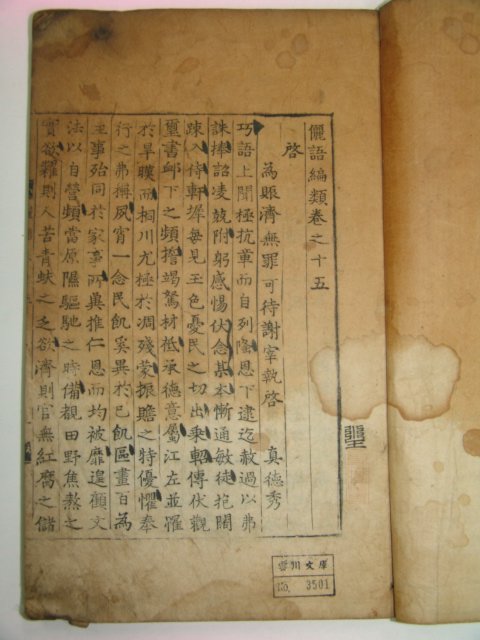 儷語編類卷之十五
啓
為賑濟無罪可待謝宰執啓 真德秀
巧語上聞極抗章而自列隆恩下逮迄赦過以弗
誅捧詔凌兢附躬感惕伏念某本慚通敏徒抱闊
踈入侍軒墀每見玉色憂民之切出乘軺傳伏觀
璽書卹下之頻擔竭駑材祗承德意屬江左並罹
於旱暵而桐川尤極於凋殘蒙振贍之特優懼奉
行之弗稱夙宵一念民飢奚異於已飢區畫百為
主事殆同於家事所兾推仁恩而均被靡遑顧文
法以自營頻當原隰驅馳之時備覩田野焦熬之
實欲糴則人苦青蚨之乏欲濟則官無紅腐之儲
雲川文庫
No. 3501